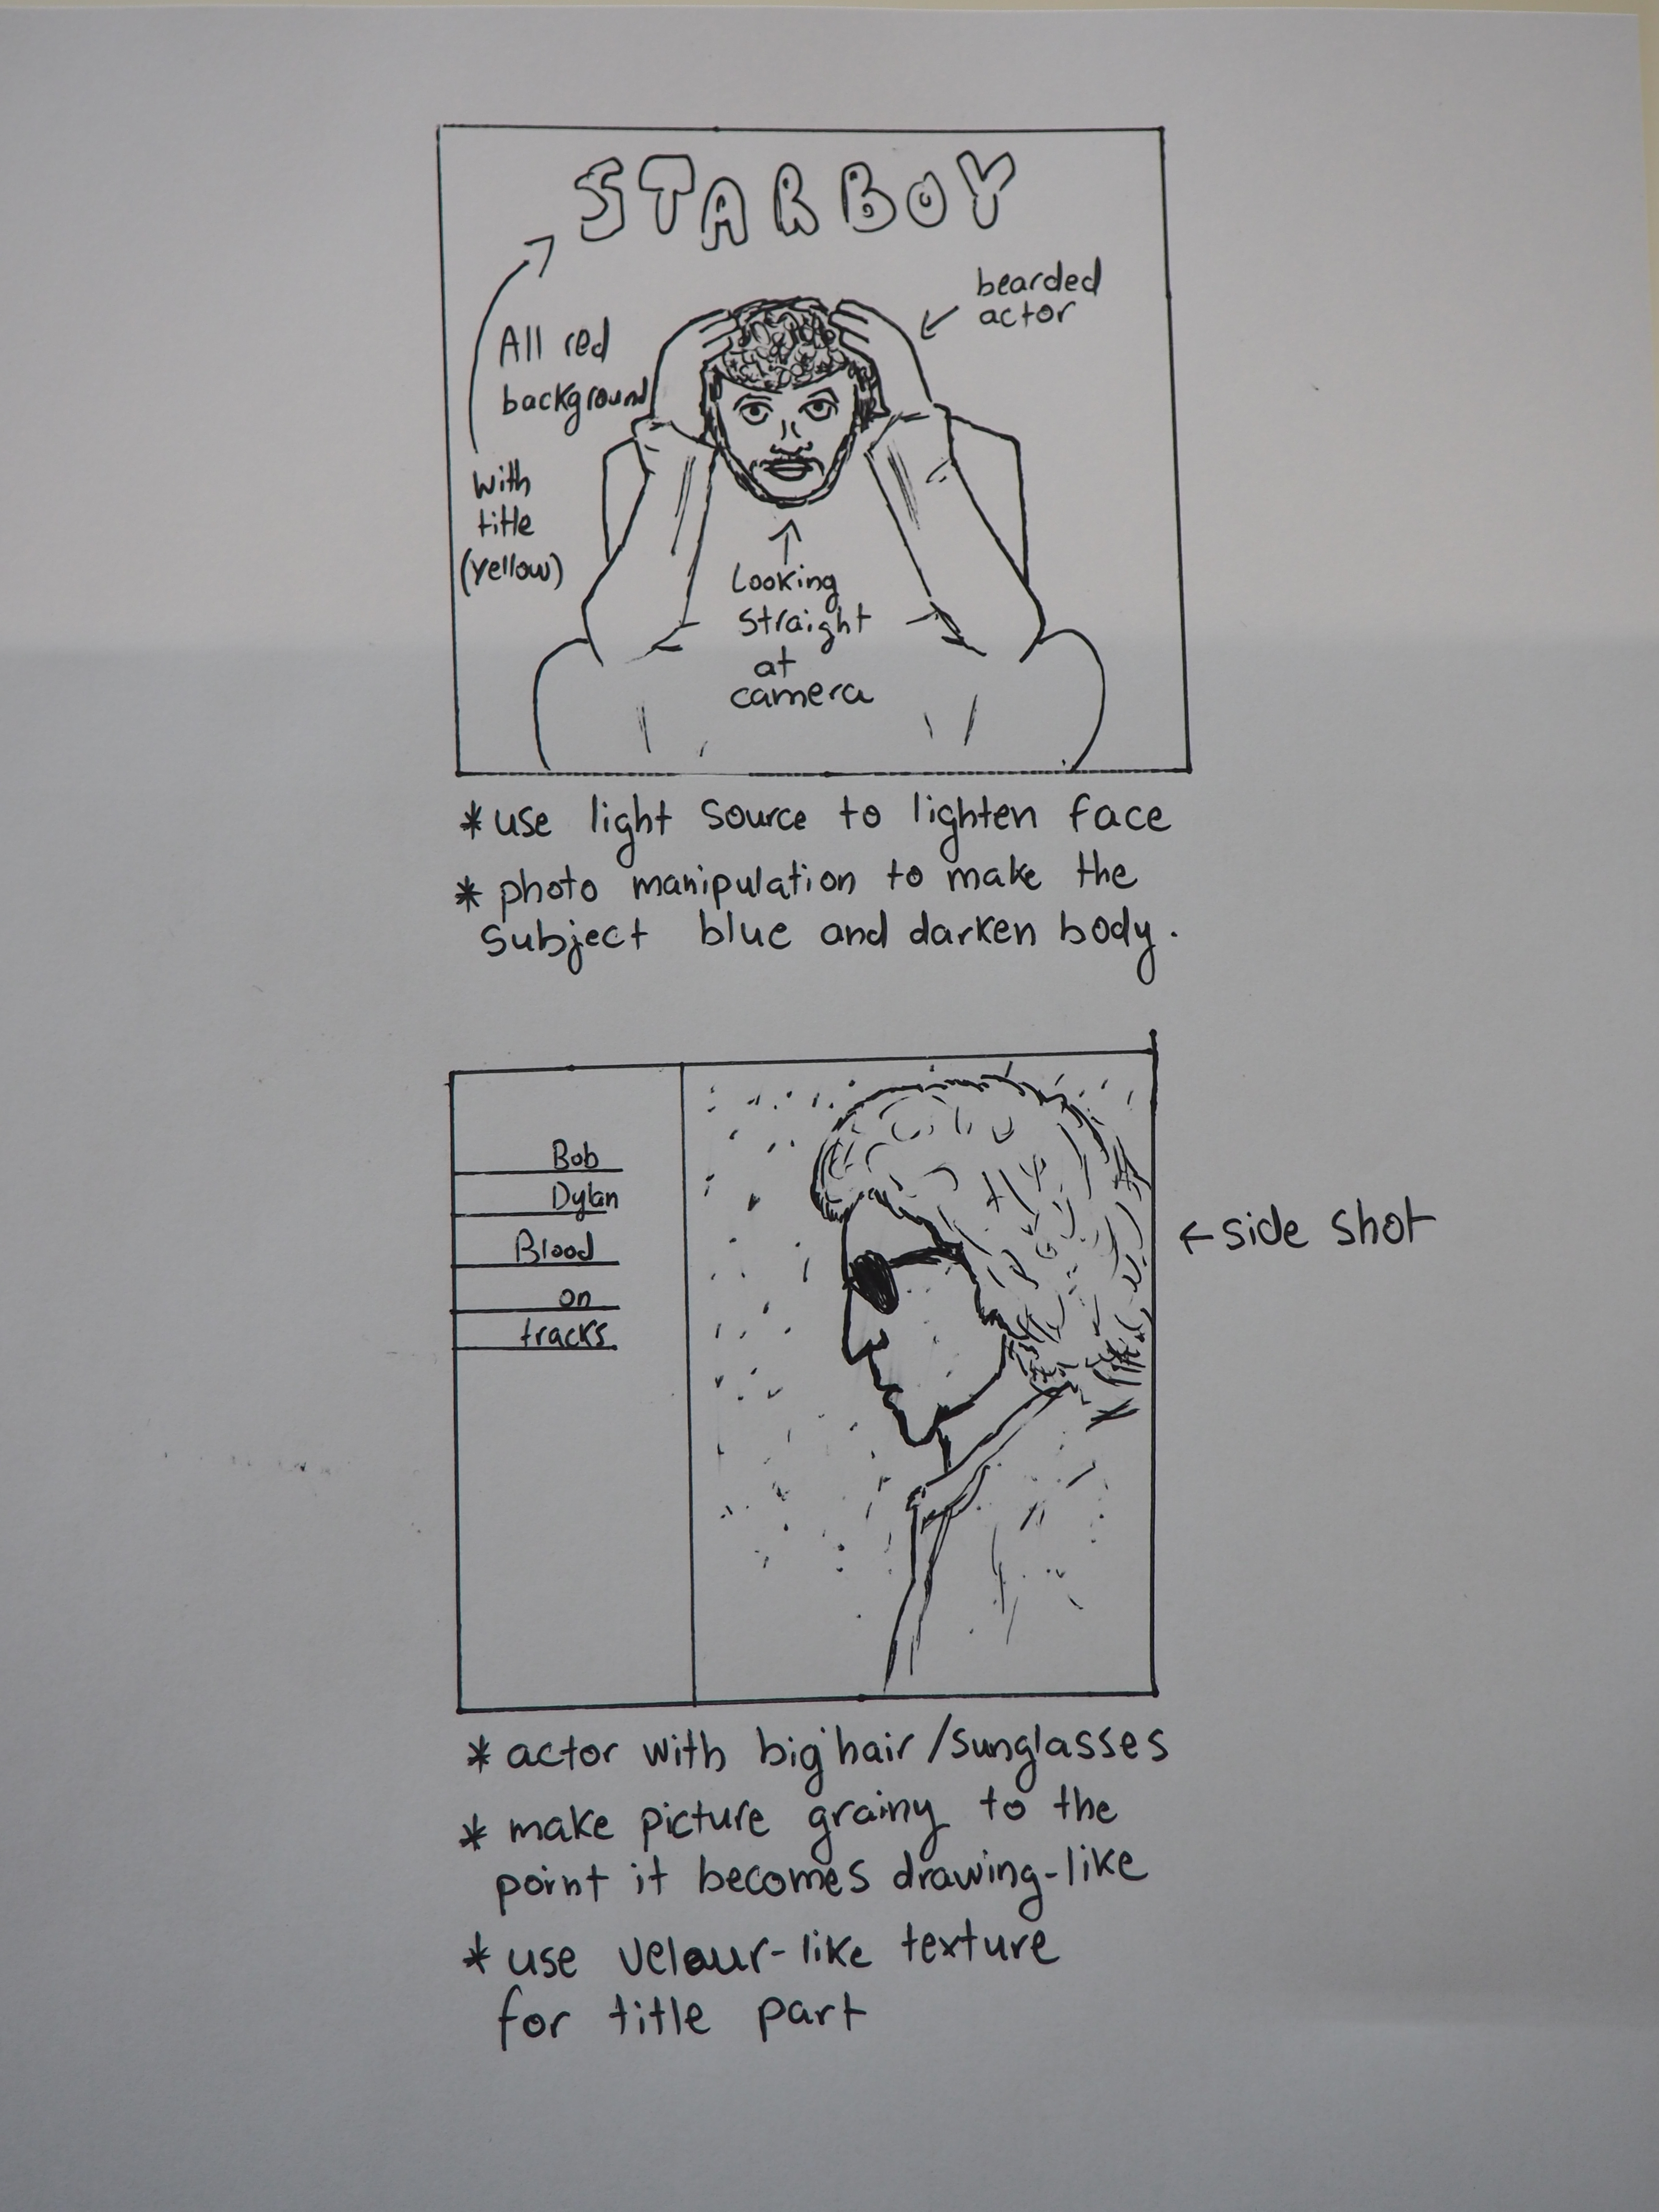 STARBOY
bearded
actor
All red
background
with
title
(yellow)
Looking
straight
at
camera
*use light source to lighten face
* photo manipulation to make the
subject blue and darken body.
Bob
Dylan
Blood
on
tracks
←side shot
* actor with big hair/sunglasses
* make picture grainy to the
point it becomes drawing-like
* use velour-like texture
for title part